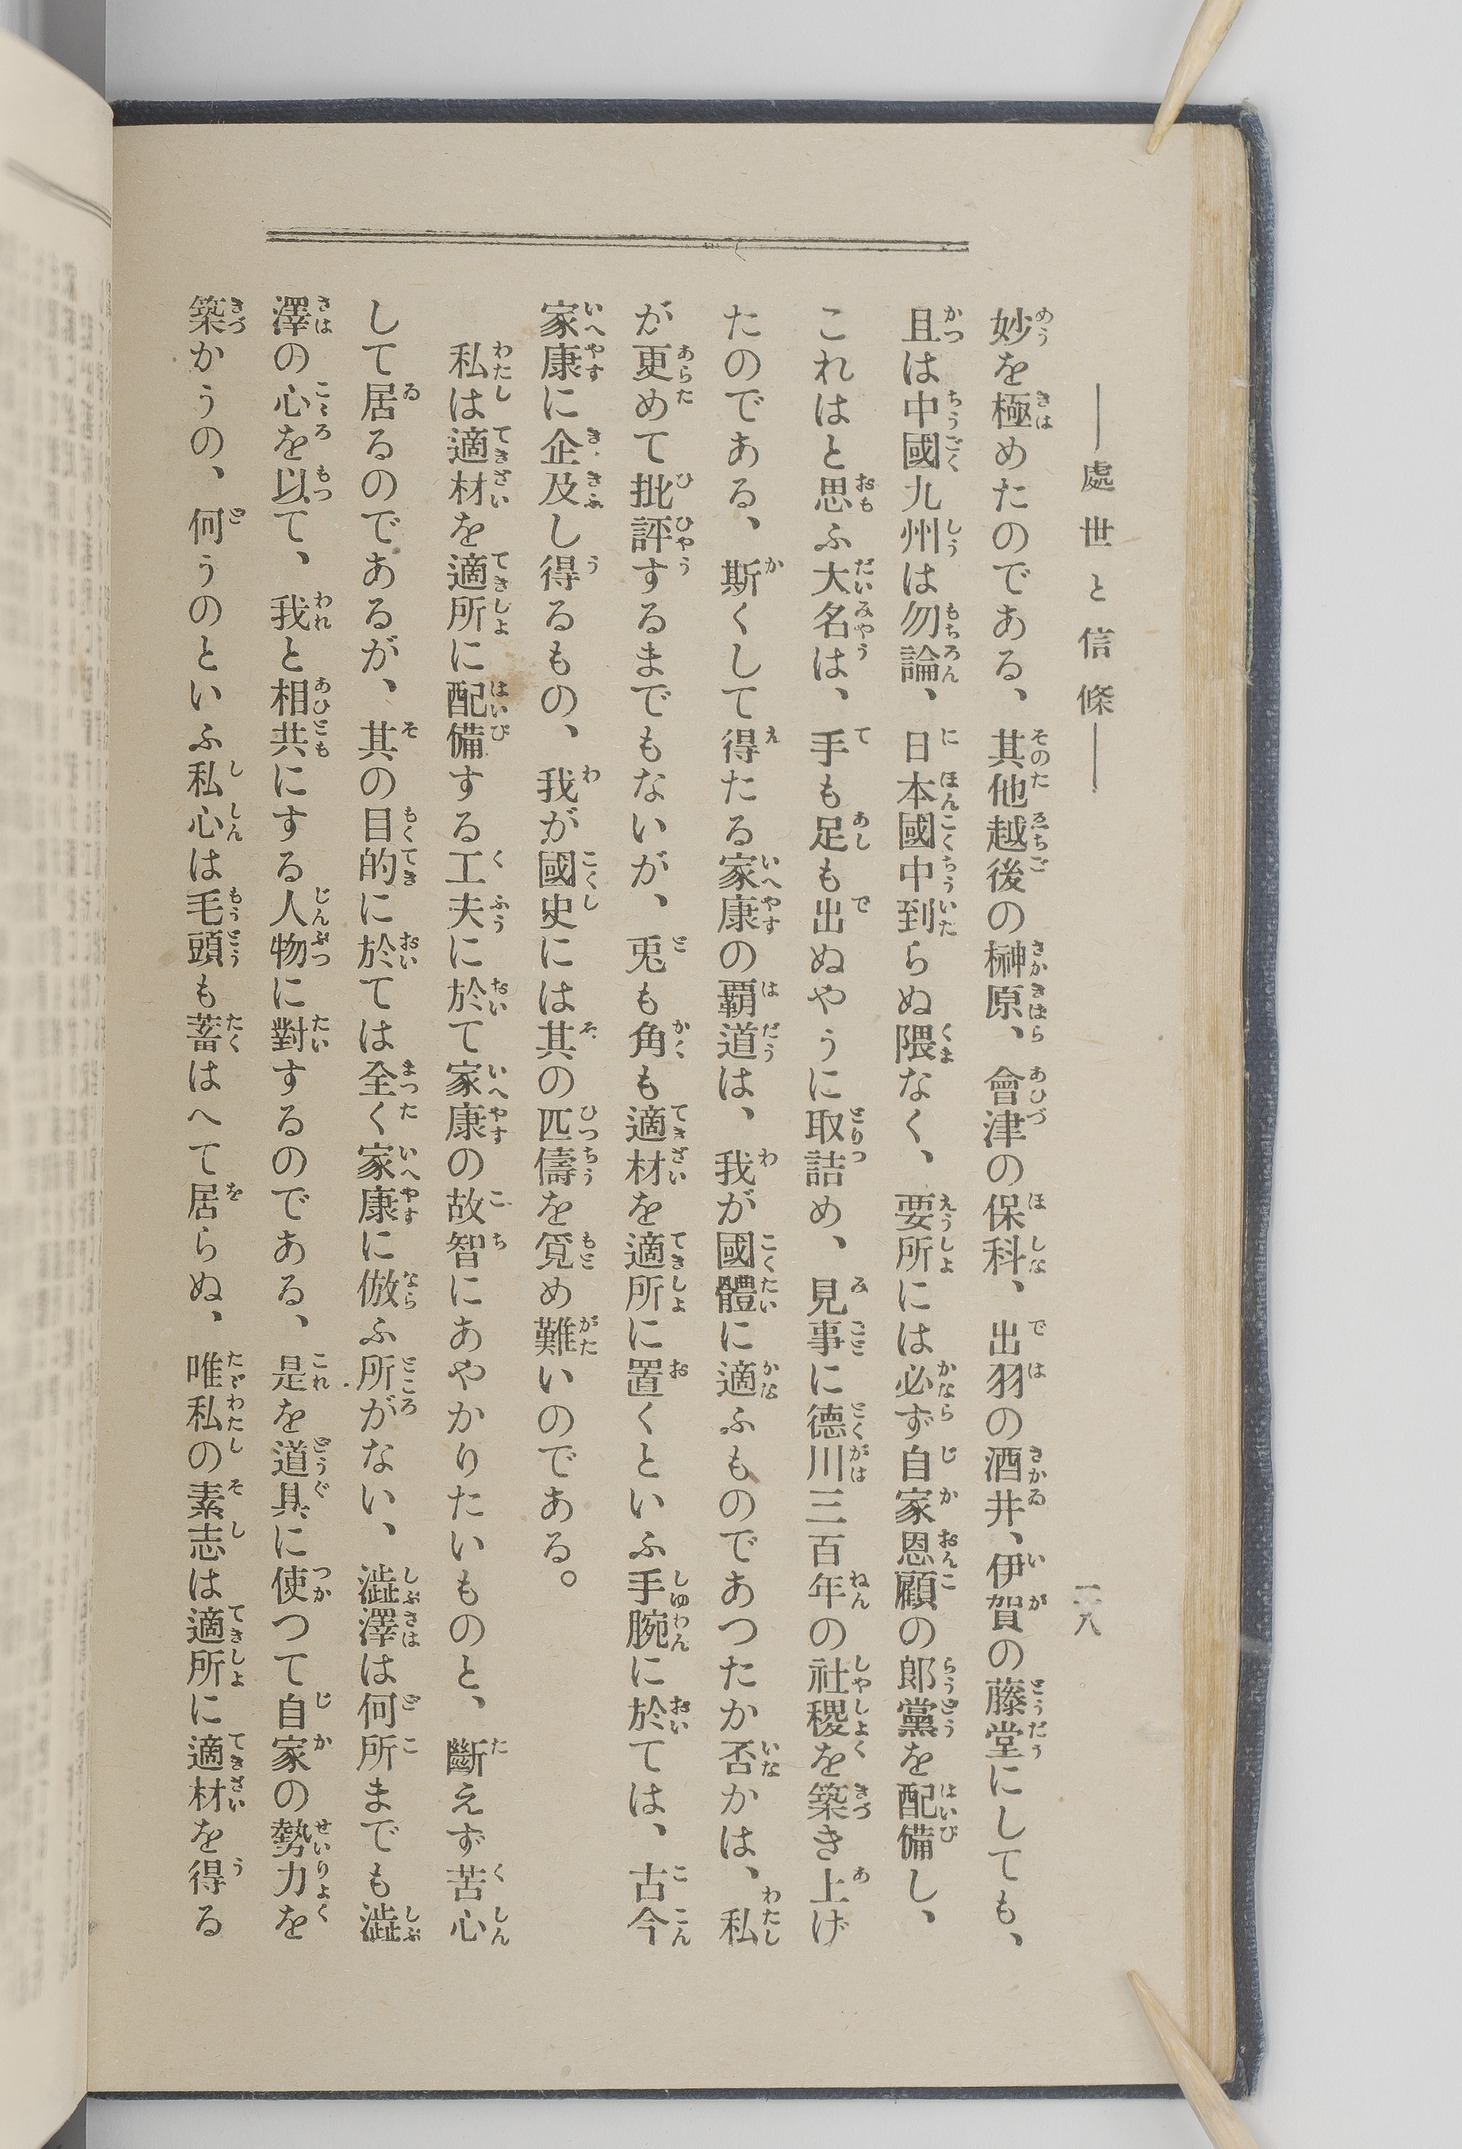 ――處世と信條――
一八
妙を極めたのである、其他越後の榊原、會津の保科、出羽の酒井、伊賀の藤堂にしても、
且は中國九州は勿論、日本國中到らぬ隈なく、要所には必ず自家恩顧の郎黨を配備し、
これはと思ふ大名は、手も足も出ぬやうに取詰め、見事に德川三百年の社稷を築き上げ
たのである、斯くして得たる家康の覇道は、我が國體に適ふものであつたか否かは、私
が更めて批評するまでもないが、兎も角も適材を適所に置くといふ手腕に於ては、古今
家康に企及し得るもの、我が國史には其の匹儔を覓め難いのである。
私は適材を適所に配備する工夫に於て家康の故智にあやかりたいものと、斷えず苦心
して居るのであるが、其の目的に於ては全く家康に倣ふ所がない、澁澤は何所までも澁
澤の心を以て、我と相共にする人物に對するのである、是を道具に使つて自家の勢力を
築かうの、何うのといふ私心は毛頭も蓄はへて居らぬ、唯私の素志は適所に適材を得る